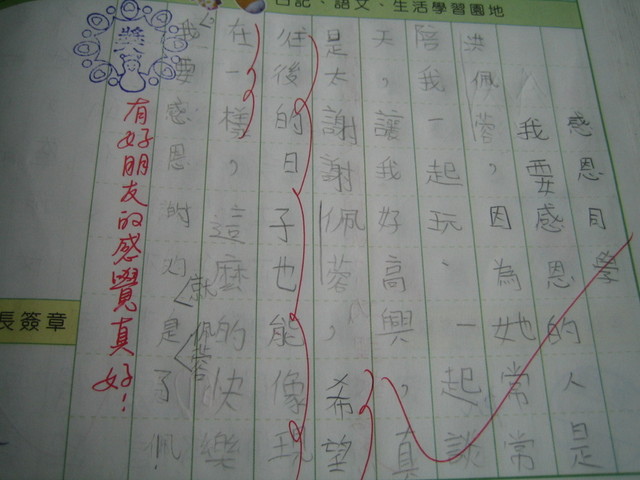 日記、語文、生活學習園地
感恩同學
我要感恩的人是
洪佩蓉，因為她常常
陪我一起玩、一起談
天，讓我好高興，真
是太謝謝佩蓉，希望
往後的日子也能像現
在一樣，這麼的快樂
我要感恩的人就是佩蓉了
有好朋友的感覺真好！
長簽章